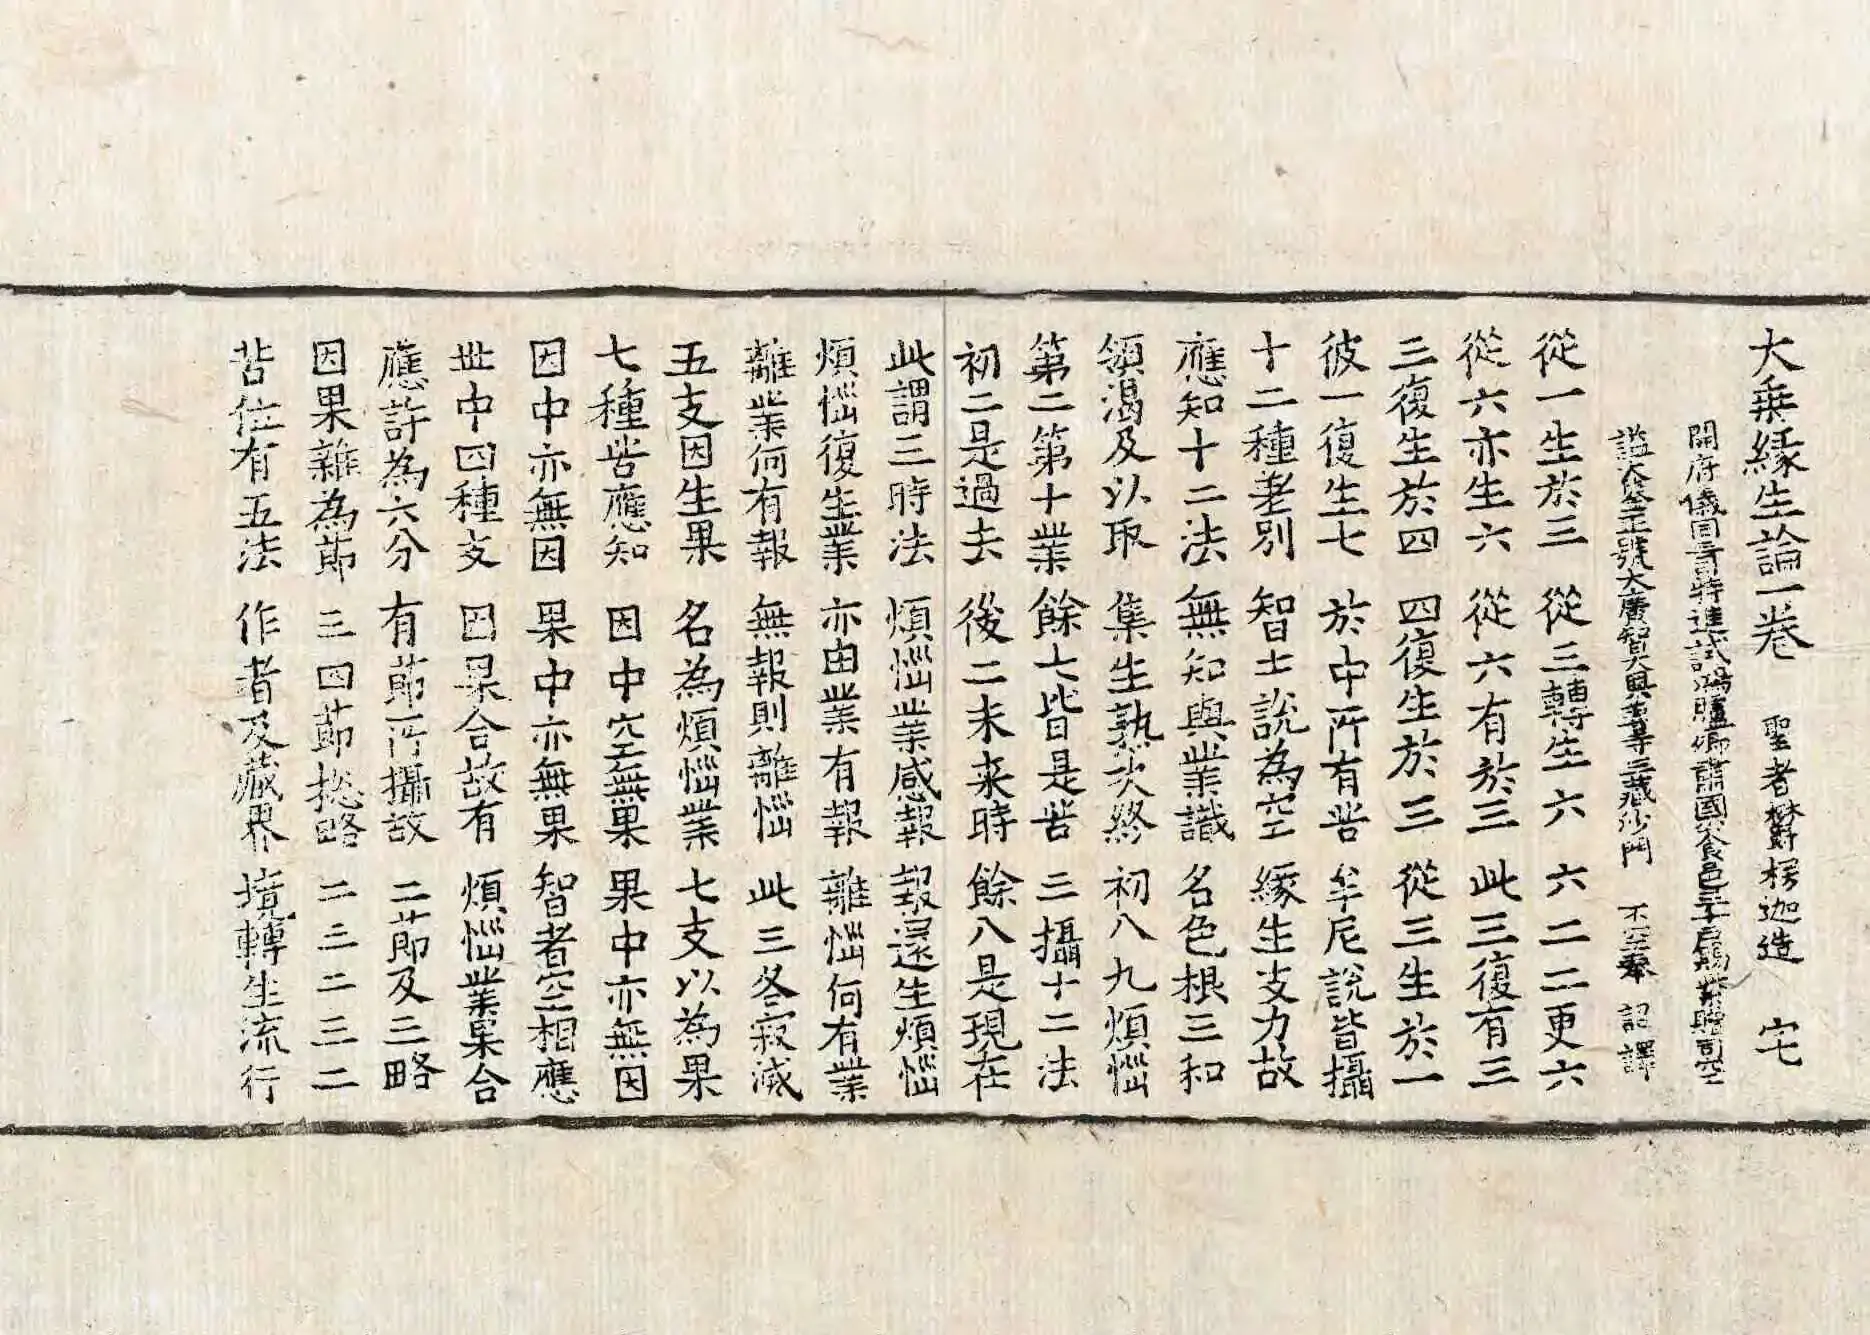 大乗縁生論一卷 聖者欝楞迦造 宅
開府儀同三司特進試鴻臚卿肅國公食邑三千戶賜紫贈司空
謚大鑒正號大廣智大興善寺三藏沙門 不空奉 詔譯
從一生於三 從三轉生六 六二二更六
從六亦生六 從六有於三 此三復有三
三復生於四 四復生於三 從三生於一
彼一復生七 於中所有苦 牟尼說皆攝
十二種差別 智士說為空 緣生支力故
應知十二法 無知與業識 名色根三和
領渴及以取 集生熟次終 初八九煩惱
第二第十業 餘七皆是苦 三攝十二法
初二是過去 後二未来時 餘八是現在
此謂三時法 煩惱業感報 報還生煩惱
煩惱復生業 亦由業有報 離惱何有業
離業何有報 無報則離惱 此三各寂滅
五支因生果 名為煩惱業 七支以為果
七種苦應知 因中空無果 果中亦無因
因中亦無因 果中亦無果 智者空相應
世中四種支 因果合故有 煩惱業果合
應許為六分 有節所攝故 二節及三略
因果雜為節 三四節揔略 二三二三二
苦位有五法 作者及藏界 境轉生流行